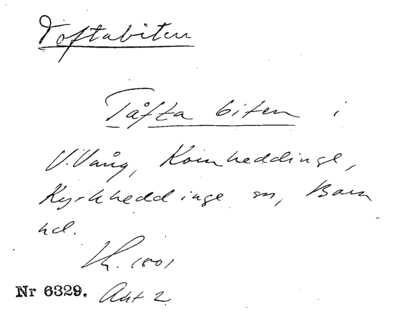 Toftabiten
Tåfta biten i
V.Vång, Kornheddinge,
Kyrkheddinge sn, Bara
hd.
1801
Nr 6329. Akt 2